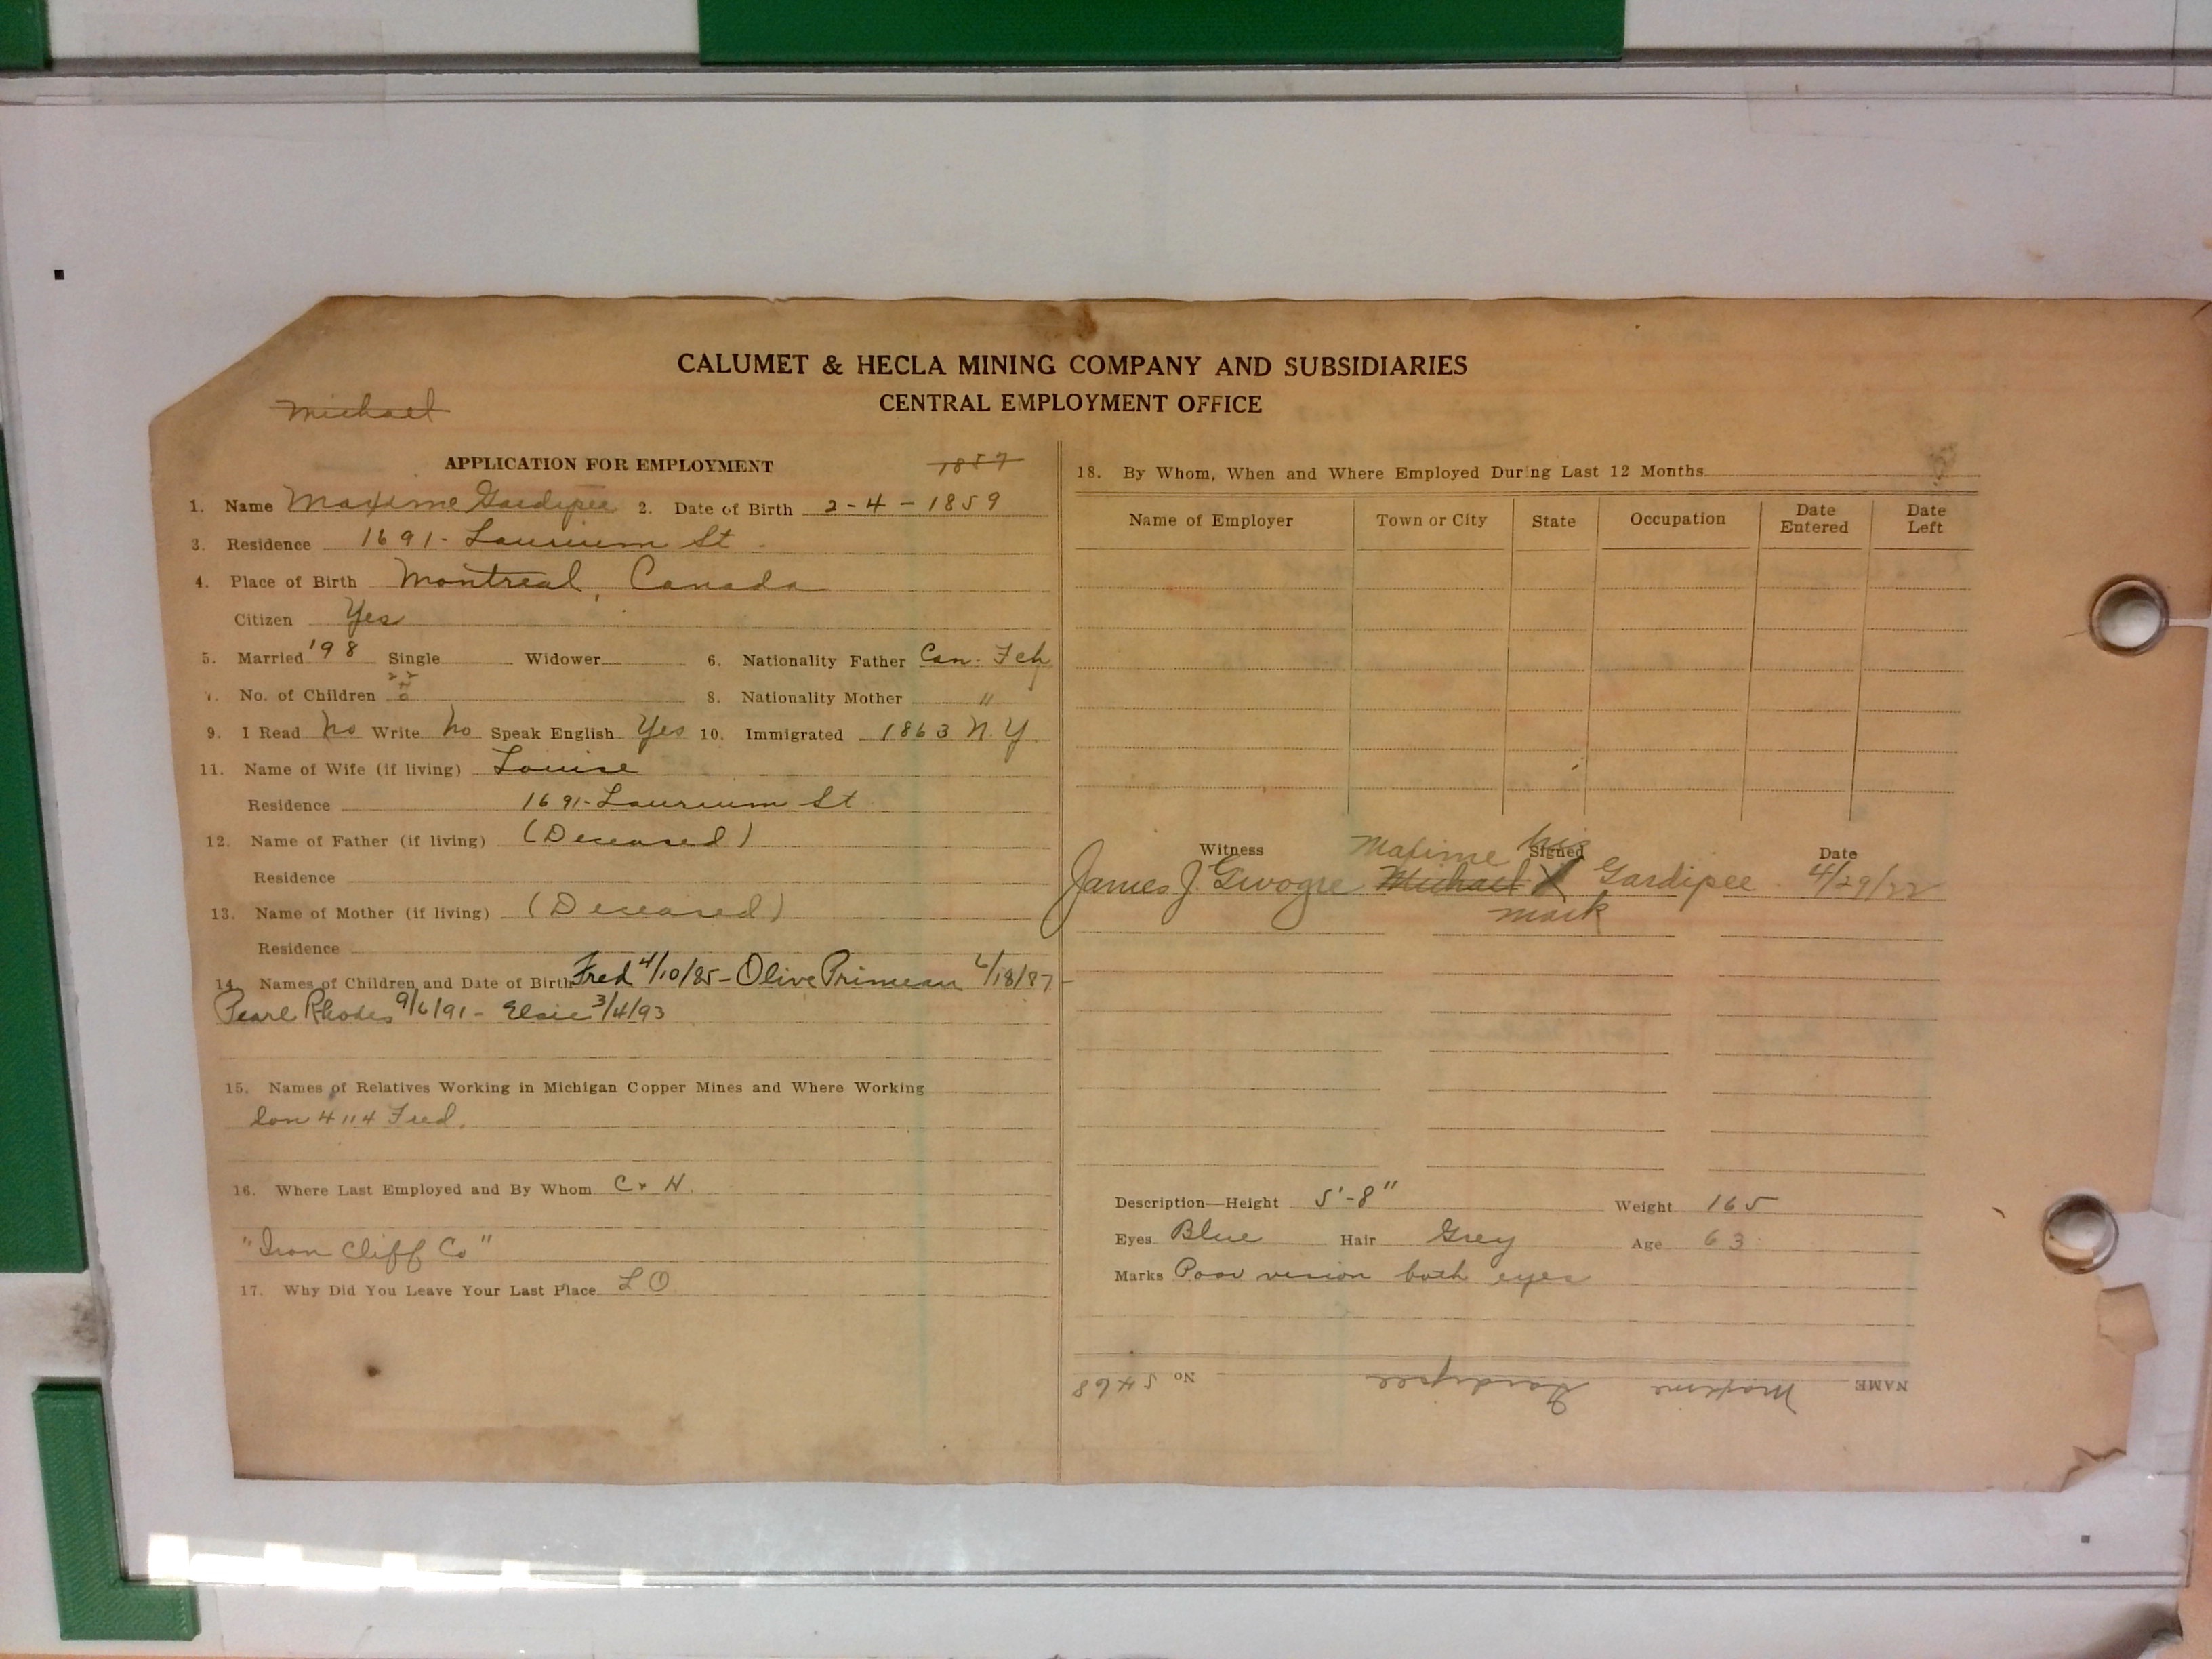 CALUMET & HECLA MINING COMPANY AND SUBSIDIARIES
CENTRAL EMPLOYMENT OFFICE
Michael
APPLICATION FOR EMPLOYMENT 1857
1. Name Maxime Gardipee 2. Date of Birth 2-4-1859
3. Residence 1691- Laurium St
4. Place of Birth Montreal, Canada
Citizen Yes
5. Married '98 Single Widower 6. Nationality Father Can. Fch
7. No. of Children 8. Nationality Mother "
9. I Read No Write No Speak English Yes 10. Immigrated 1863 N.Y.
11. Name of Wife (if living) Louise
Residence 1691- Laurium St
12. Name of Father (if living) (Deceased)
Residence
13. Name of Mother (if living) (Deceased)
Residence
14. Names of Children and Date of Birth Fred 4/10/85 - Olive Primeau 6/18/87 -
Pearl Rhodes 9/6/91 - Elsie 3/4/93
15. Names of Relatives Working in Michigan Copper Mines and Where Working
Son 4114 Fred.
16. Where Last Employed and By Whom C & H.
"Iron Cliff Co"
17. Why Did You Leave Your Last Place LO
18. By Whom, When and Where Employed During Last 12 Months
Name of Employer Town or City State Occupation Date Entered Date Left
Witness Signed Date
Maxime his
James J. Michael X Gardipee 4/29/22
mark
Description—Height 5'-8" Weight 165
Eyes Blue Hair Grey Age 63
Marks Poor vision both eyes
NAME Maxime Gardipee No 5468